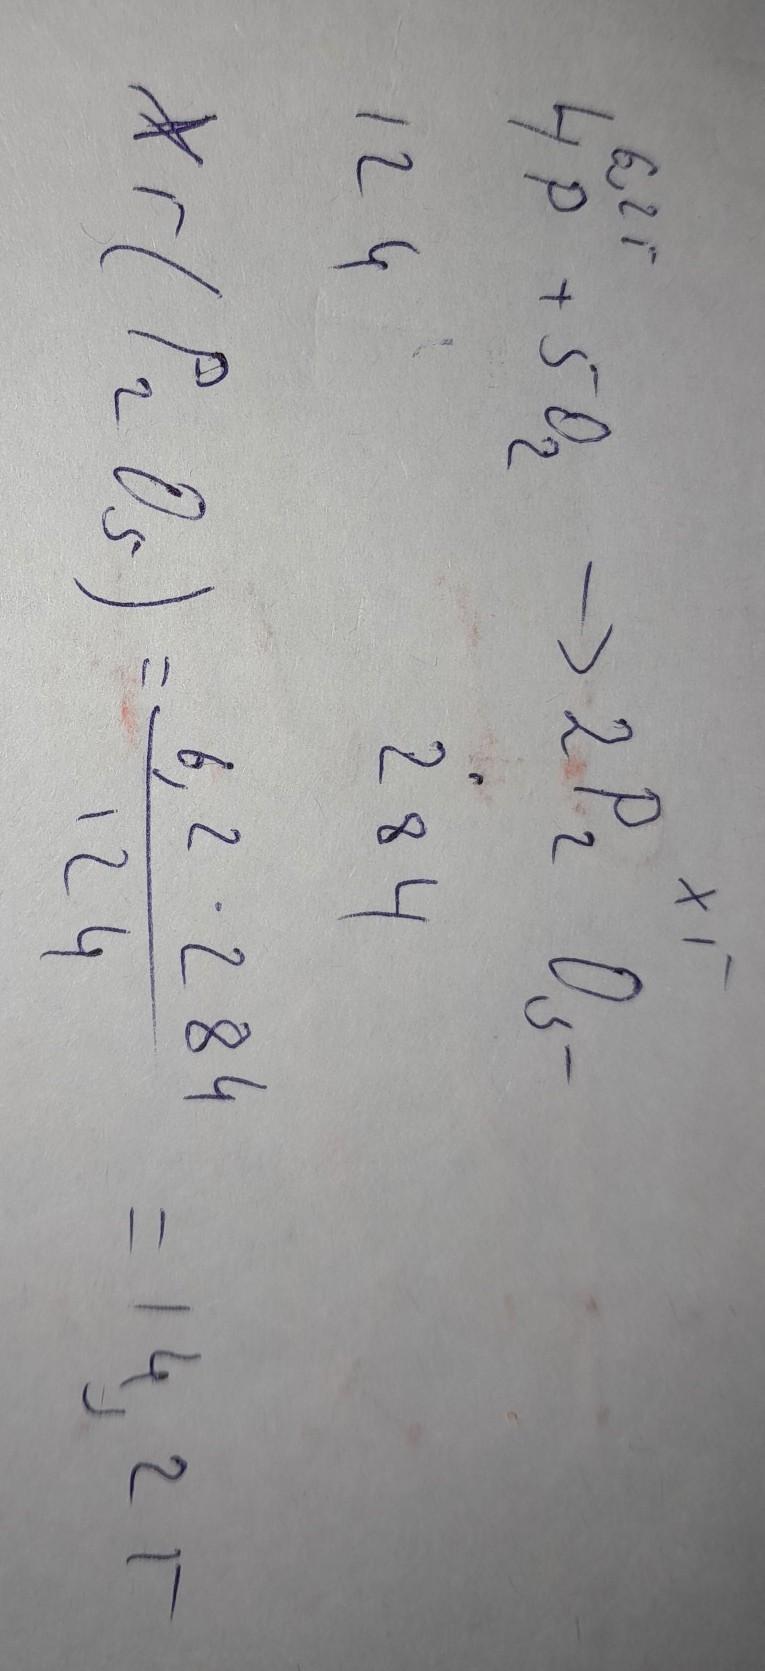 6,2г xг
4P + 5O₂ → 2P₂O₅
124 284
xг(P₂O₅) = 6,2 · 284 / 124 = 14,2 г